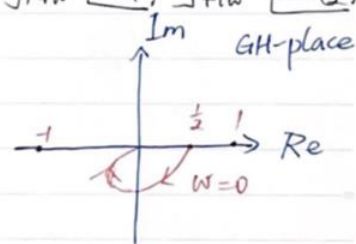 Im
GH-place
-1
1/2
1
Re
w=0